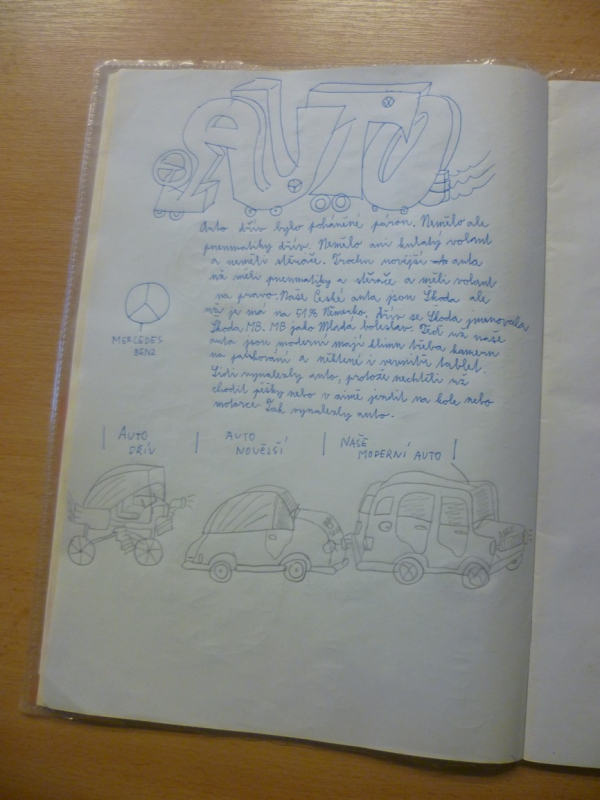 AUTO
Auto dřív bylo poháněné párou. Nemělo ale
pneumatiky dřív. Nemělo ani kulatý volant
a neměli stěrače. Trochu novější auta
už měli pneumatiky a stěrače a měli volant
na pravo. Naše České auta jsou Škoda ale
už je má na 51% Německo. Dřív se Škoda jmenovala
Škoda, MB. MB jako Mladá boleslav. Teď už naše
auta jsou moderní mají klimu třeba kameru
na parkování a některé i vevnitř tablet.
Lidi vynalezly auto, protože nechtěli už
chodit pěšky nebo v zimě jezdit na kole nebo
motorce. Tak vynalezly auto.
MERCEDES
BENZ
AUTO
DŘÍV
AUTO
NOVĚJŠÍ
NAŠE
MODERNÍ AUTO